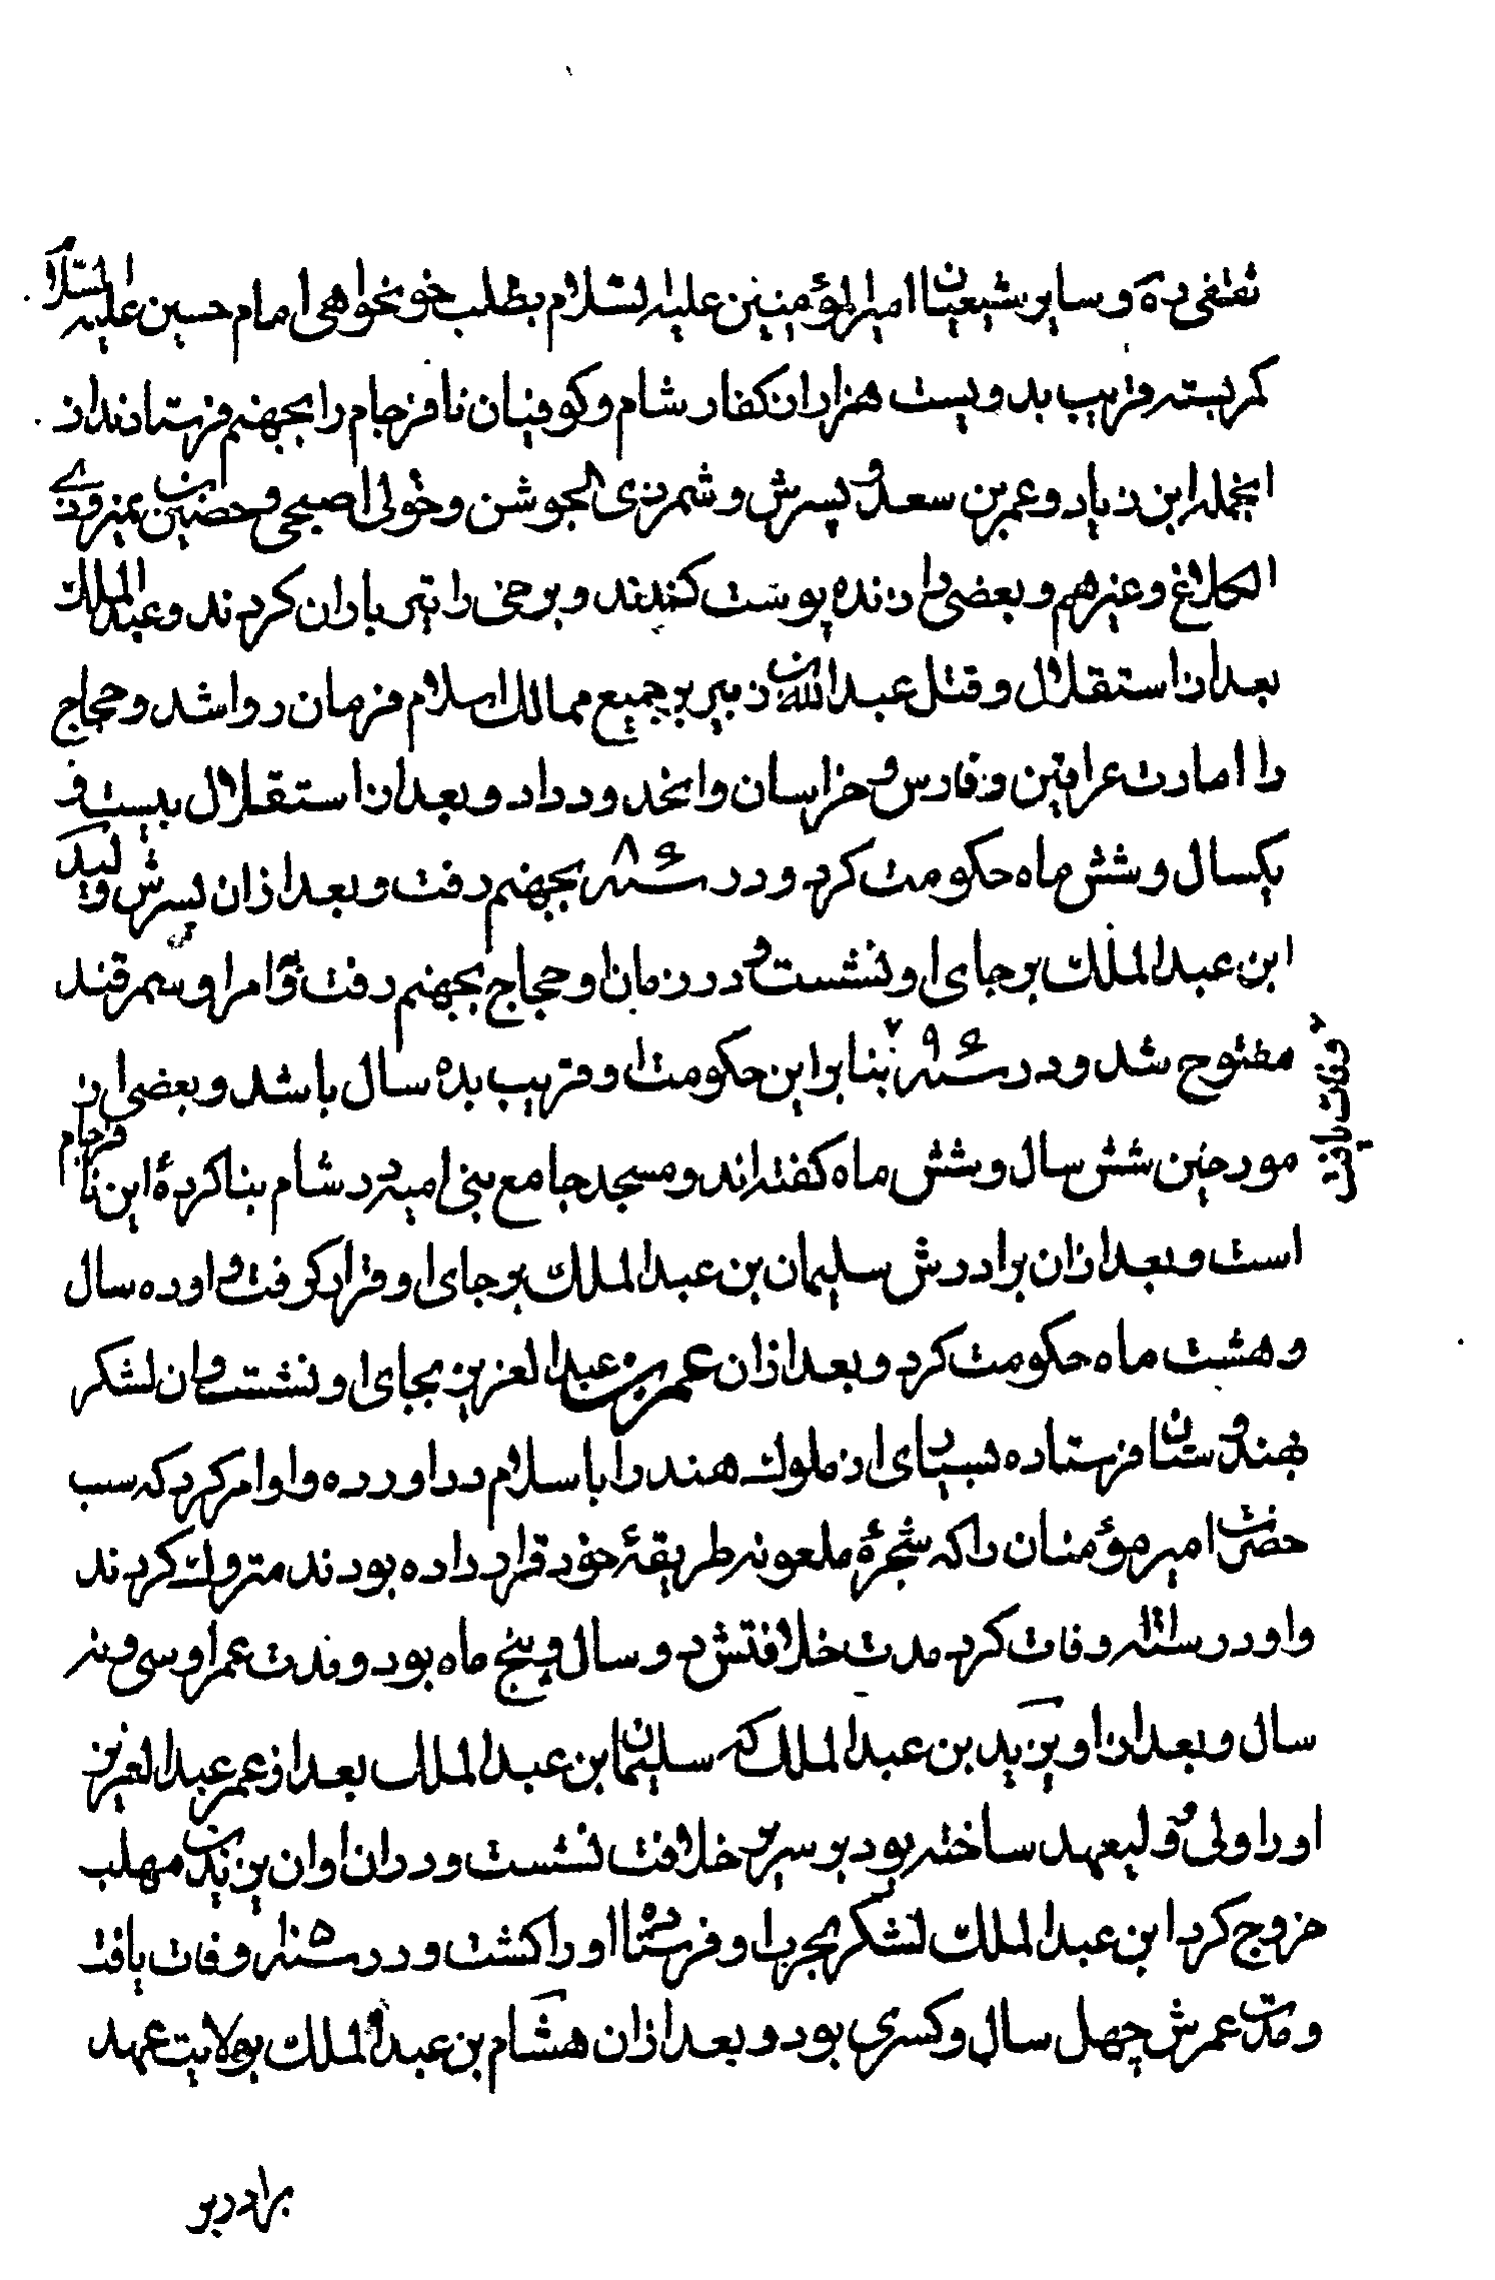 ثقفی ده و سایر شیعیان امیر المؤمنین علیه السلام بطلب خونخواهی امام حسین علیه السلام
کمر بسته قریب بدویست هزار از کفار شام و کوفیان نافرجام را بجهنم فرستادند از
انجمله ابن زیاد و عمر بن سعد و پسرش و شمر ذی الجوشن و خولی اصبحی و حصین بن نمیر و ذی
الکلاغ و غیرهم و بعضی را زنده پوست کندند و برخی را تیر باران کردند و عبد الملک
بعد از استقلال و قتل عبد الله بن زبیر بر جمیع ممالک اسلام فرمان روا شد و حجاج
را امارت عراقین و فارس و خراسان و انحدود داد و بعد از استقلال بیست و
یکسال و شش ماه حکومت کرد و در سنه ۸۶ بجهنم رفت و بعد از ان پسرش ولید
ابن عبد الملک بر جای او نشست و در زمان او حجاج بجهنم رفت و امرا و سمرقند
مفتوح شد و در سنه ۹۶ بنا بر این حکومت او قریب بده سال باشد و بعضی از
وفات یافت
مورخین شش سال و شش ماه کفته اند و مسجد جامع بنی امیه در شام بنا کردهٔ این نافرجام
است و بعد از ان برادرش سلیمان بن عبد الملک بر جای او قرار کرفت و او ده سال
و هشت ماه حکومت کرد و بعد از ان عمر بن عبد العزیز بجای او نشست و ان لشکر
بهندوستان فرستاده بسیاری از ملوک هند را باسلام دراورده و او امر کرد که سب
حضرت امیر مؤمنان را که شجرهٔ ملعونه طریقهٔ خود قرار داده بودند متروک کردند
و او در سنه وفات کرد مدت خلافتش دو سال و پنج ماه بود و مدت عمر او سی و نه
سال و بعد از او یزید بن عبد الملک که سلیمان بن عبد الملک بعد از عمر عبد العزیز
او را ولی ولیعهد ساخته بود بر سریر خلافت نشست و در ان اوان یزید بن مهلب
خروج کرد ابن عبد الملک لشکر بحرب او فرستاده او را کشت و در سنه وفات یافت
و مدت عمرش چهل سال و کسری بود و بعد از ان هشام بن عبد الملک بولایت عهد
برادر بر